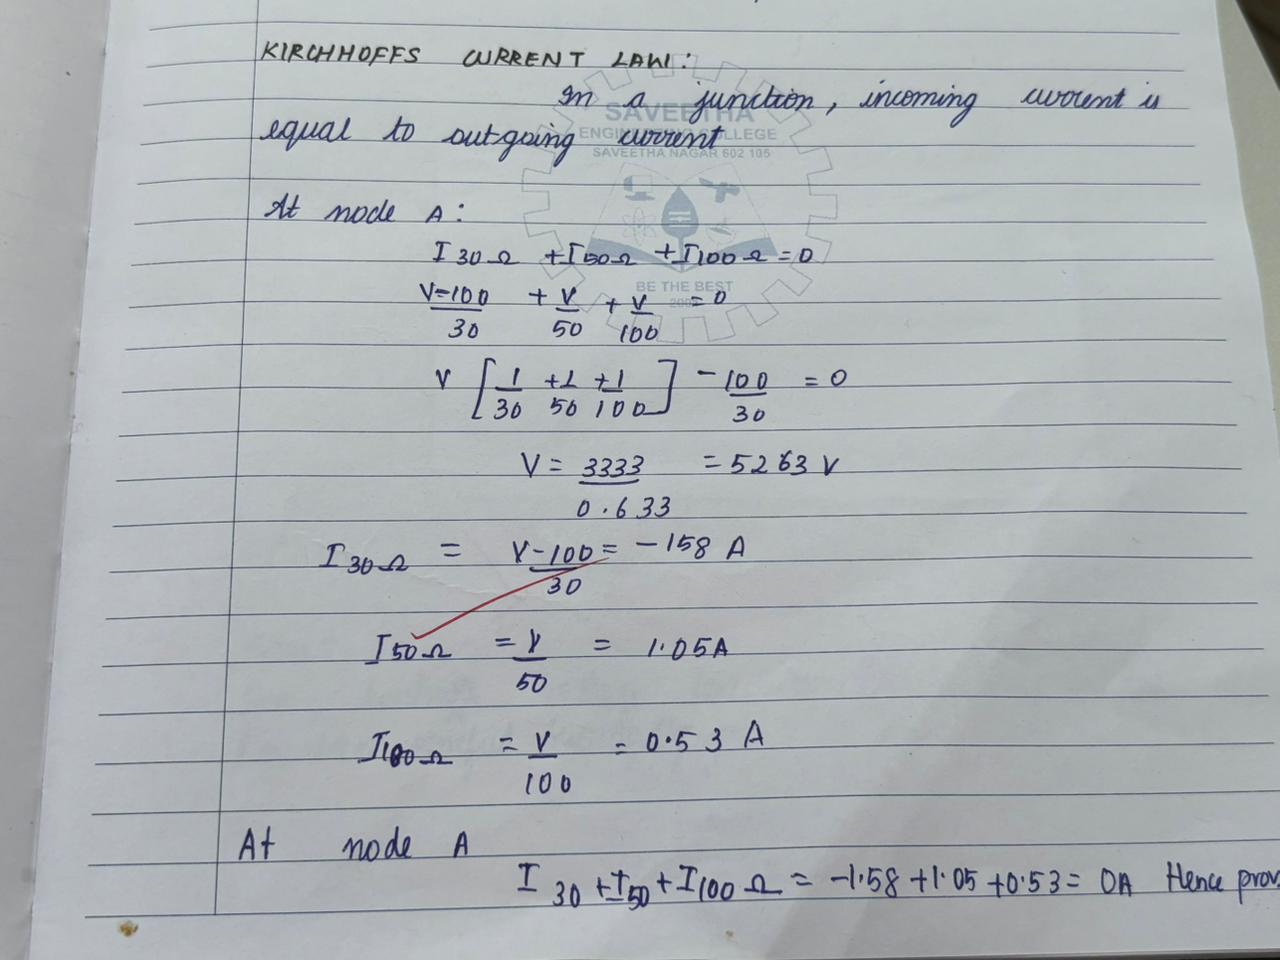 KIRCHHOFFS CURRENT LAW:
In a junction, incoming current is
equal to outgoing current
SAVEETHA
ENGINEERING COLLEGE
SAVEETHA NAGAR 602 105
At node A:
I 30Ω + I50Ω + I100Ω = 0
BE THE BEST
V-100/30 + V/50 + V/100 = 0
V [1/30 + 1/50 + 1/100] - 100/30 = 0
V = 3333/0.633 = 5263 V
I 30Ω = V-100/30 = -158 A
I50Ω = V/50 = 1.05A
I100Ω = V/100 = 0.53 A
At node A
I 30 + I50 + I100Ω = -1.58 + 1.05 + 0.53 = 0A Hence prov